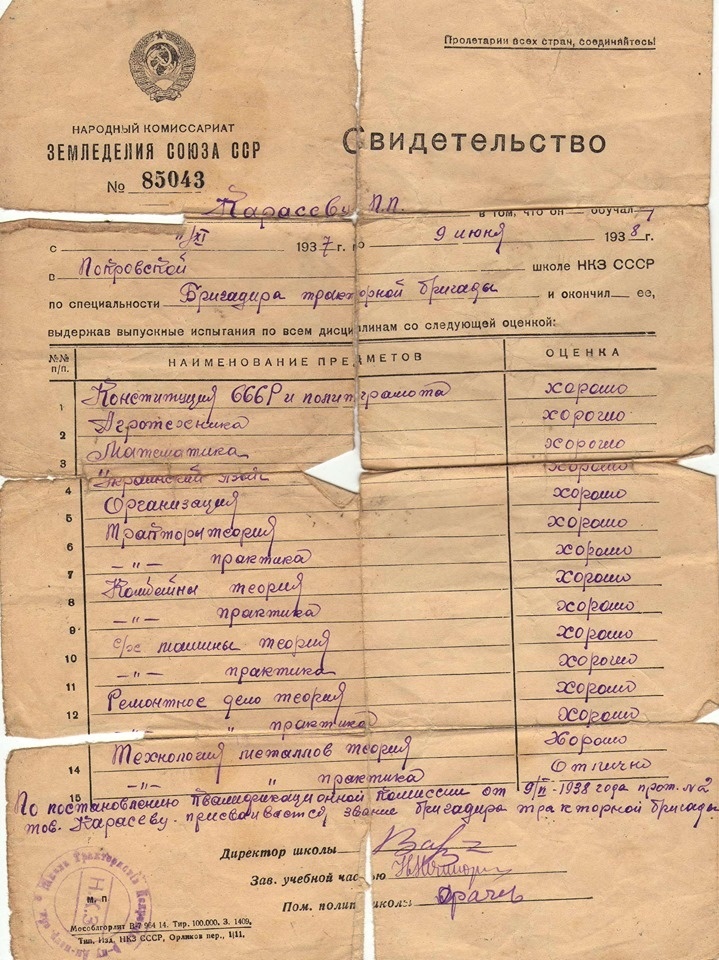 Пролетарии всех стран, соединяйтесь!
НАРОДНЫЙ КОМИССАРИАТ
ЗЕМЛЕДЕЛИЯ СОЮЗА ССР
№ 85043
Свидетельство
Карасеву П.П. в том, что он обучал
с 1/XI 1937 г. по 9 июня 1938 г.
в Покровской школе НКЗ СССР
по специальности Бригадира тракторной бригады и окончил ее,
выдержав выпускные испытания по всем дисциплинам со следующей оценкой:
№№ п/п. НАИМЕНОВАНИЕ ПРЕДМЕТОВ ОЦЕНКА
1 Конституция СССР и политграмота хорошо
2 Агротехника хорошо
3 Математика хорошо
4 Украинский язык хорошо
5 Организация хорошо
6 Тракторы теория хорошо
7 —"— практика хорошо
8 Комбайны теория хорошо
9 —"— практика хорошо
10 с/х машины теория хорошо
11 —"— практика хорошо
12 Ремонтное дело теория хорошо
" практика хорошо
14 Технология металлов теория Хорошо
15 —"— " практика Отлично
По постановлению Квалификационной Комиссии от 9/VI-1938 года прот. №2
тов. Карасеву присваивается звание бригадира тракторной бригады
Директор школы
Зав. учебной частью
Пом. полит школы Драчев
М. П
НКЗ
Мособлгорлит В-7964 14. Тир. 100.000. З. 1409.
Тип. Изд. НКЗ СССР, Орликов пер., 1/11.